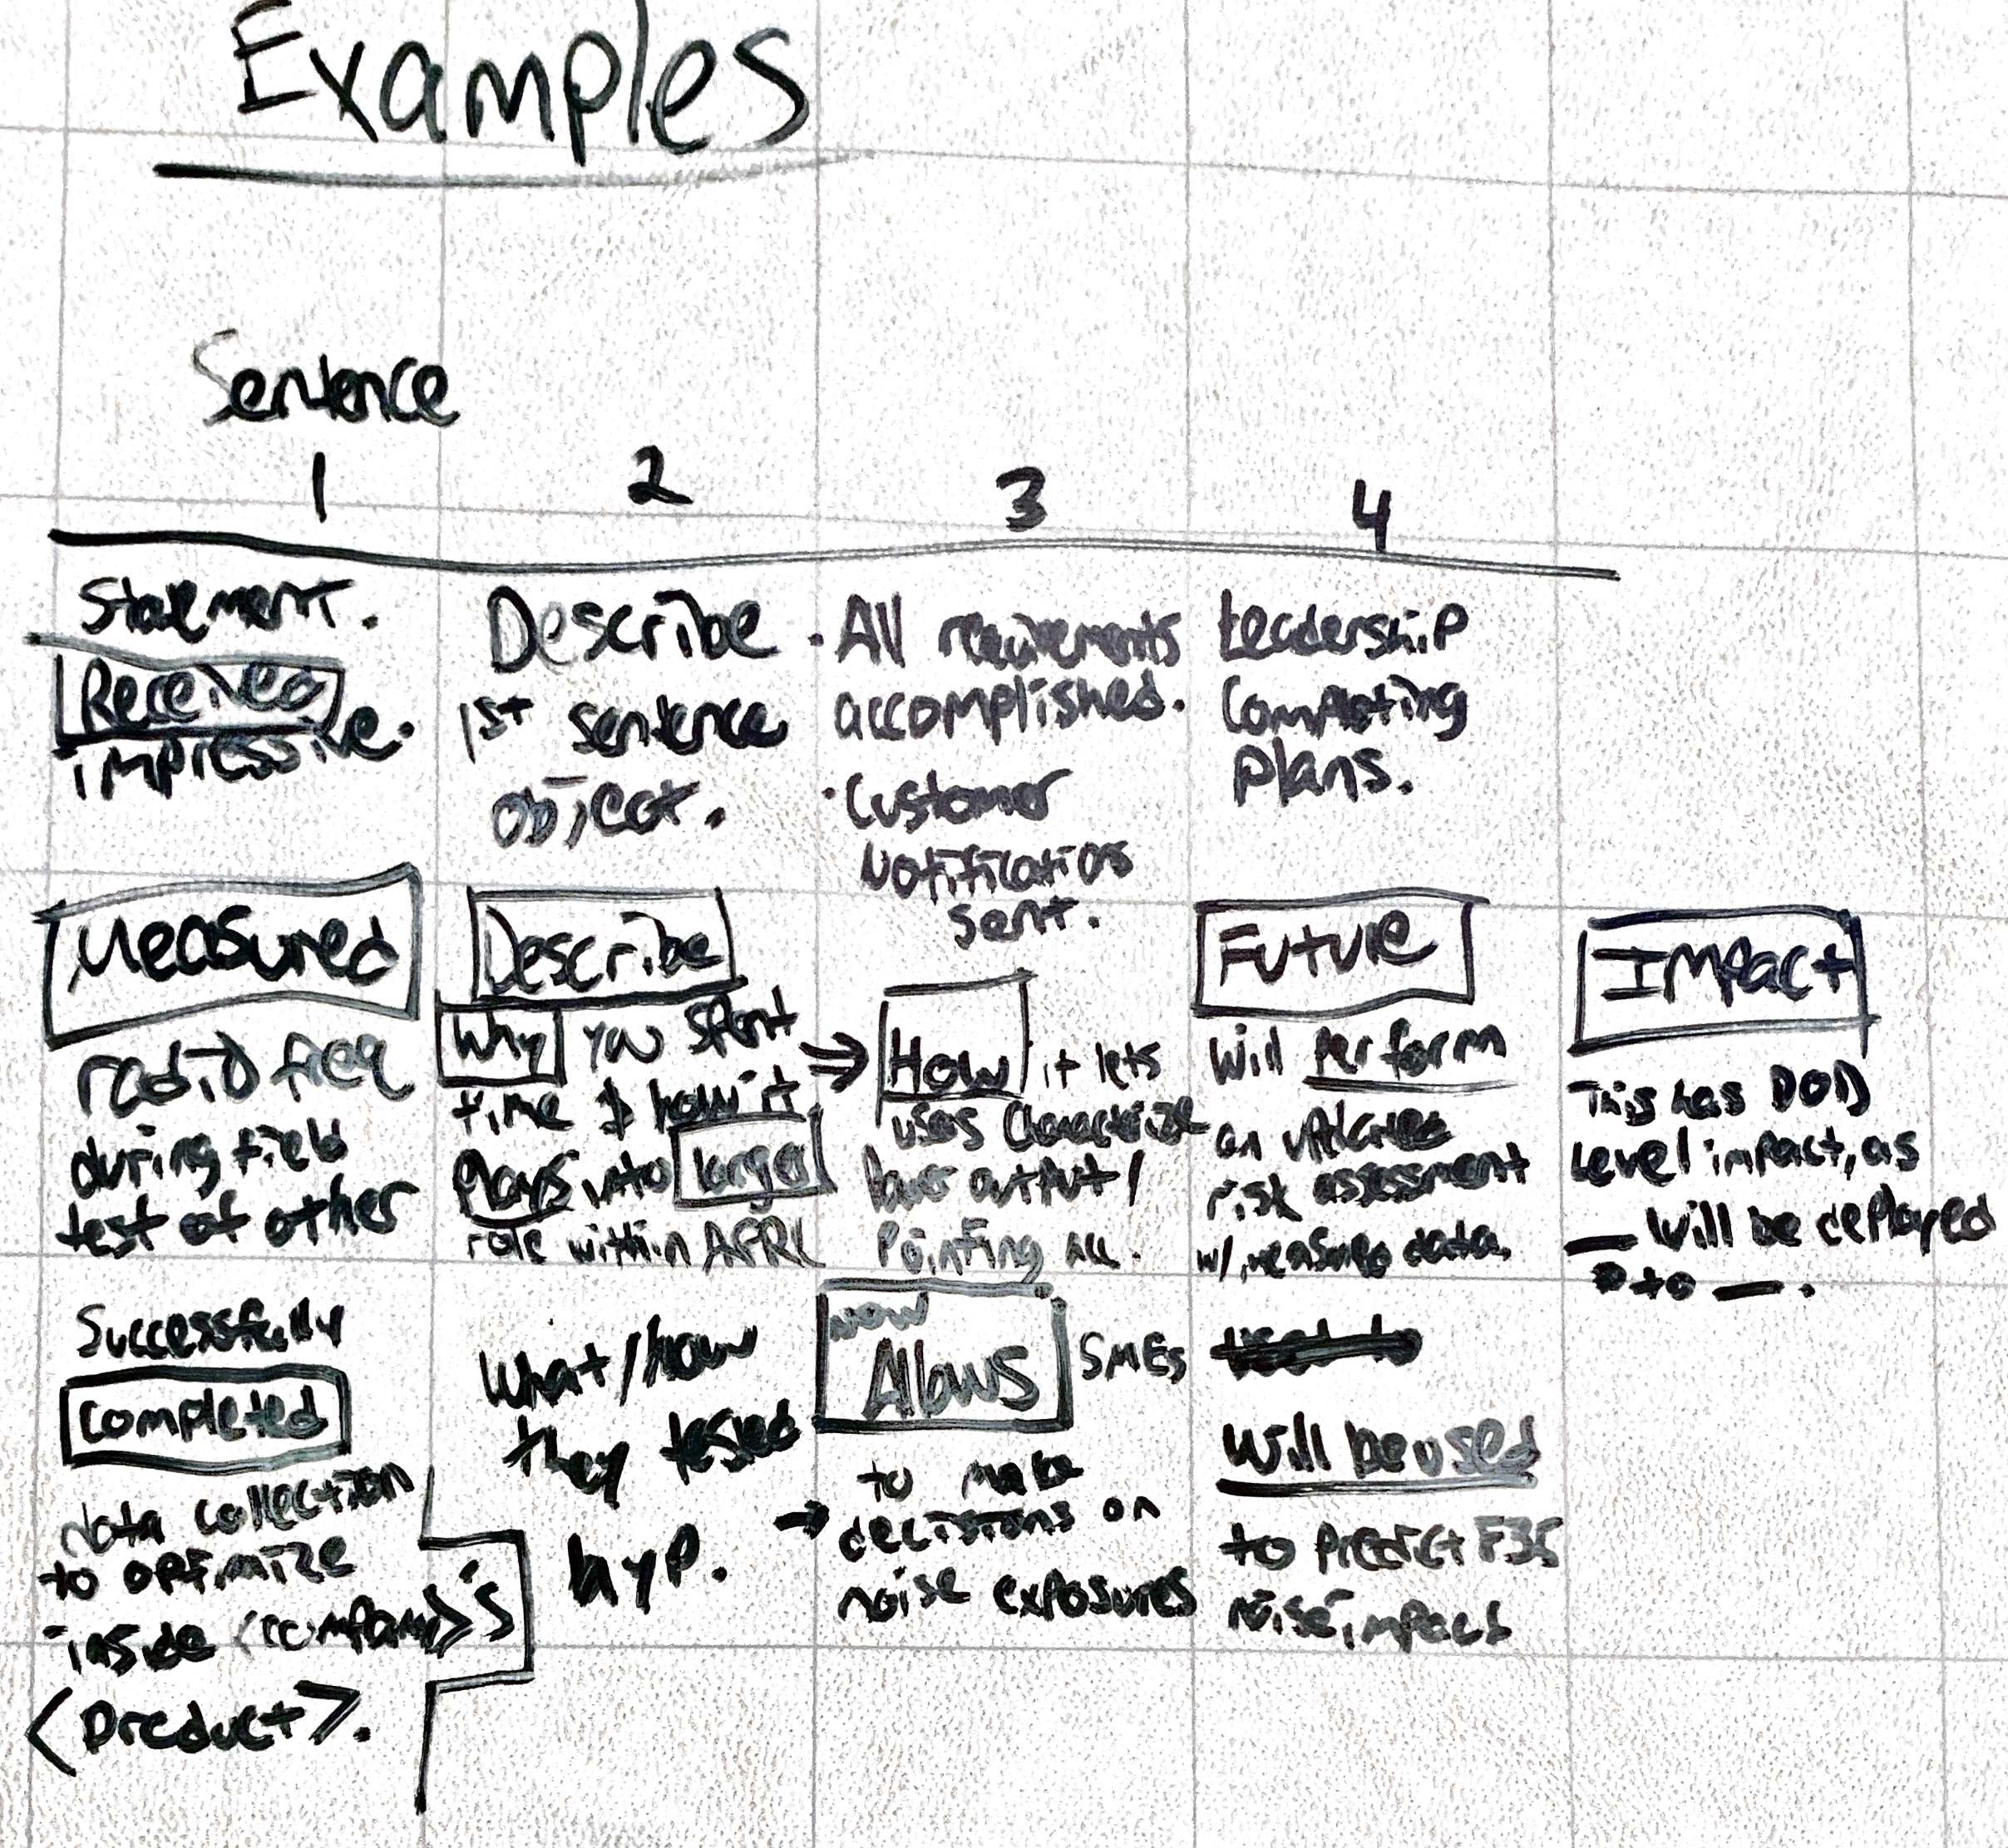 Examples
Sentence
1 2 3 4
Statement.
Received
impressive.
Describe
1st sentence
object.
· All requirements
accomplished.
· Customer
Notifications
sent.
Leadership
Completing
Plans.
Measured
radio freq
during field
test of other
Describe
Why you spent
time & how it
plays into larger
role within AFRL
⇒ How it lets
users characterize
Power output /
Pointing acc.
Future
will perform
an updated
risk assessment
w/ measured data.
Impact
This has DOD
level impact, as
__ will be deployed
to __.
Successfully
completed
data collection
to optimize
inside <company>'s
<product>.
What/how
they tested
hyp.
now
Allows SMEs
to make
→ decisions on
noise exposures
Will be used
to predict F35
noise impact